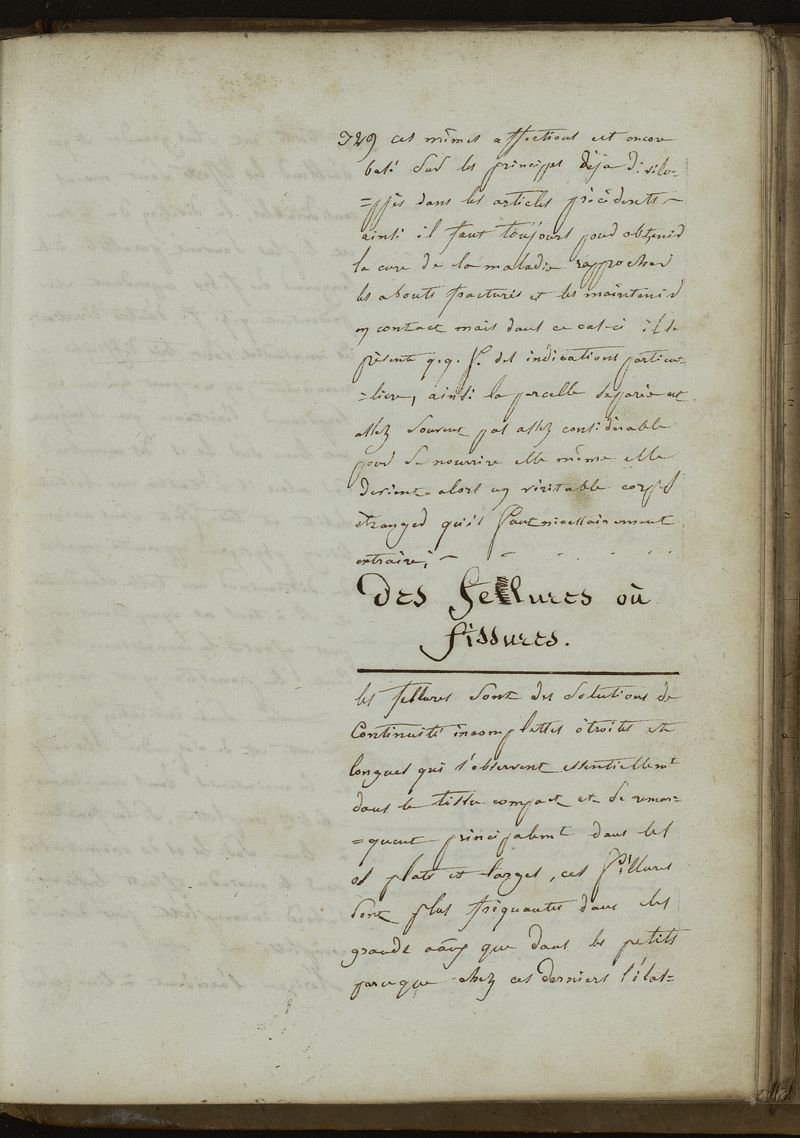 729 ces mêmes affections est encore
basé sur les principes déja dévélo-
=ppés dans les articles précédents ~
ainsi il faut toujours pour obtenir
la cure de la maladie rapprocher
les abouts fracturés et les maintenir
en contact mais dans ce cas-ci il se
présente q.q. f.s des indications particu-
=liere, ainsi la parcelle séparée est
assez souvent pas assez considérable
pour se nourrire elle même elle
devient alors un véritable corps
étranger qu'il faut nécessairement
extraire; ~
Des fellures où
fissures.
les fellures sont des solutions de
Continuité incomplettes étroites et
longues qui s'observent essentiellemt
dans le tissu compact et se remar-
=quent principalemt dans les
os plats et larges, ces fellures
sont plus fréquentes dans les
grands aãux que dans les petits
parceque chez ces derniers l'élas-